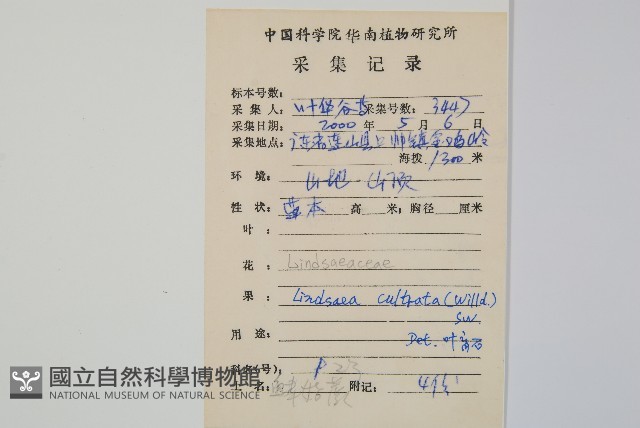 中国科学院华南植物研究所
采集记录
标本号数:
采集人: 叶华谷 采集号数: 3447
采集日期: 2000 年 5 月 6 日
采集地点: 广东省连山县上帅镇金鸡岭
海拔 1300 米
环境: 山地 山顶
性状: 草本 高 米; 胸径 厘米
叶:
花: Lindsaeaceae
果: Lindsaea cultrata (Willd.)
Sw.
用途: Det. 叶
科名(号), P 23
名: 附记: 4份
國立自然科學博物館
NATIONAL MUSEUM OF NATURAL SCIENCE